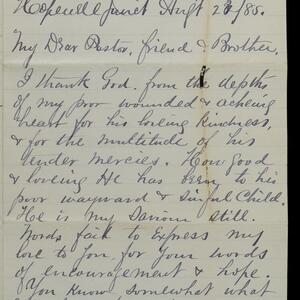 Hopewell Junct Augt 28/85.
My Dear Pastor, friend & Brother.
I thank God. from the depths
of my poor wounded & acheing
heart for his loving kindness,
& for the multitude of his
tender mercies. How good
& loveing He has been to his
poor wayward & sinful Child.
He is my Saviour still.
Words fail to Express my
love to you, for your words
of encouragement & hope.
You Know somewhat what